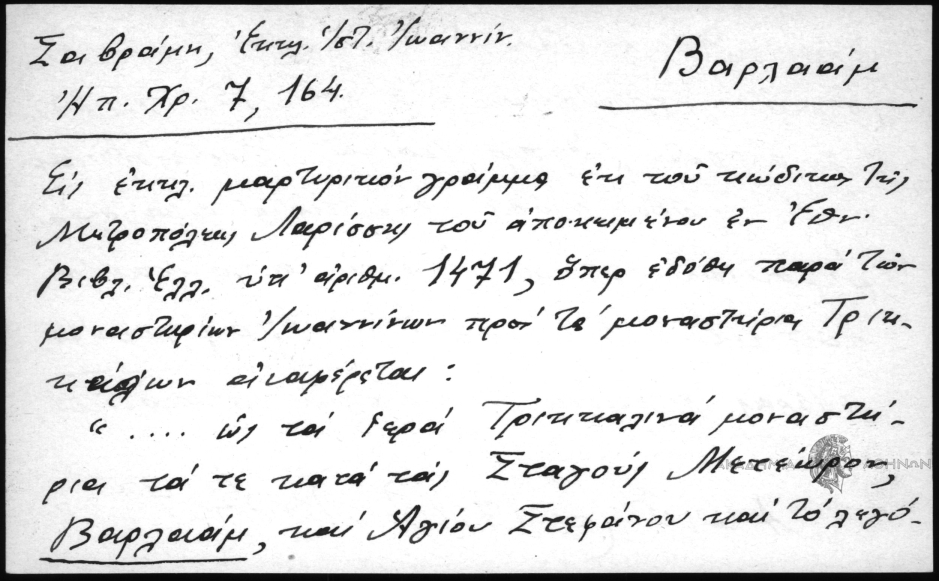 Σαβράμη, Ἐκκλ. Ἱστ. Ἰωαννίν.
Βαρλαάμ
Ἠπ. Χρ. 7, 164.
Εἰς ἐκκλ. μαρτυρικόν γράμμα ἐκ τοῦ κώδικος τῆς
Μητροπόλεως Λαρίσσης τοῦ ἀποκειμένου ἐν Ἐθν.
Βιβλ. Ἑλλ. ὑπ' ἀριθμ. 1471, ὅπερ ἐδόθη παρά τῶν
μοναστηρίων Ἰωαννίνων πρός τά μοναστήρια Τρικ-
κάλων ἀναφέρεται:
".... ὡς τά ἱερά Τρικκαλινά μοναστή-
ρια τά τε κατά τάς Σταγούς Μετέωρον,
Βαρλαάμ, καί Ἁγίου Στεφάνου καί τό λεγό-
ΑΚΑΔΗΜΙΑ ΑΘΗΝΩΝ